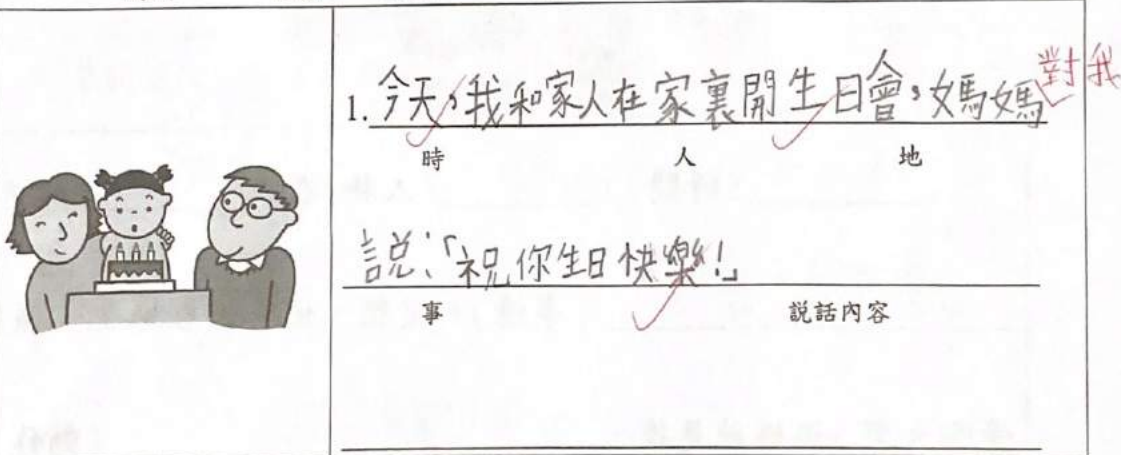 1. 今天，我和家人在家裏開生日會，媽媽對我
時 人 地
説：「祝你生日快樂！」
事 説話內容